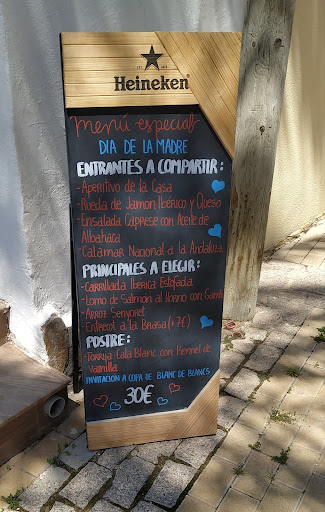 Heineken
menú especial
DIA DE LA MADRE
ENTRANTES A COMPARTIR:
- Aperitivo de la Casa
- Rueda de Jamon Iberico y Queso
- Ensalada Caprese con Aceite de
Albahaca
- Calamar Nacional a la Andaluza
PRINCIPALES A ELEGIR:
- Carrillada Iberica Estofada
- Lomo de Salmon al Horno con
- Arroz Senyoret
- Entrecot a la Brasa (+7€)
POSTRE:
- Torrija Cala Blanc con Helado de
Vainilla
INVITACIÓN A COPA DE BLANC DE BLANCS
30€